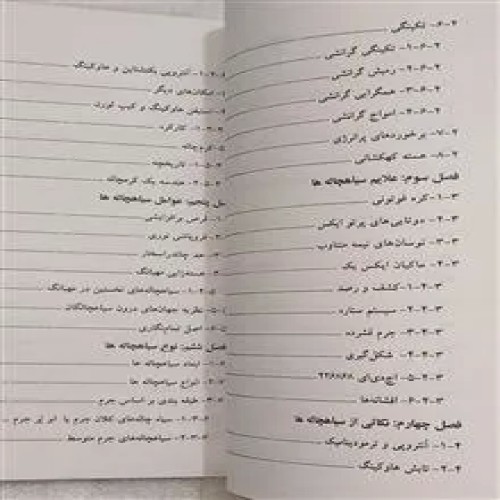 ۲-۶- تکینگی
۲-۶-۱- تکینگی گرانشی
۲-۶-۲- رمبش گرانشی
۲-۶-۳- همگرایی گرانشی
۲-۶-۴- امواج گرانشی
۲-۷- برخوردهای پرانرژی
۲-۸- هسته کهکشانی
فصل سوم: علایم سیاهچاله ها
۳-۱- کره فوتونی
۳-۲- دوتایی‌های پرتو ایکس
۳-۳- نوسان‌های نیمه متناوب
۳-۴- ماکیان ایکس یک
۳-۴-۱- کشف و رصد
۳-۴-۲- سیستم ستاره
۳-۴-۳- جرم فشرده
۳-۴-۴- شکل‌گیری
۳-۴-۵- اچ‌دی‌ای ۲۲۶۸۶۸
۳-۴-۶- افشانه‌ها
فصل چهارم: نکاتی از سیاهچاله ها
۴-۱- آنتروپی و ترمودینامیک
۴-۲- تابش هاوکینگ
آنتروپی بکنشتاین و هاوکینگ
امکان‌های دیگر
هاوکینگ و کیپ تورن
کارکرد
کرم‌چاله
تاریخچه
هندسه یک کرمچاله
پنجم: عوامل سیاهچاله ها
فروپاشی نوری
حد چاندراسخار
همه‌زایی مهبانگ
سیاهچاله‌های نخستین در مهبانگ
نظریه جهان‌های درون سیاهچالگان
اصل تمام‌نگاری
فصل ششم: نوع سیاهچاله ها
ابعاد سیاهچاله ها
انواع سیاهچاله ها
طبقه بندی بر اساس جرم
سیاه چاله‌های کلان جرم یا ابر پر جرم
سیاهچاله‌های جرم متوسط